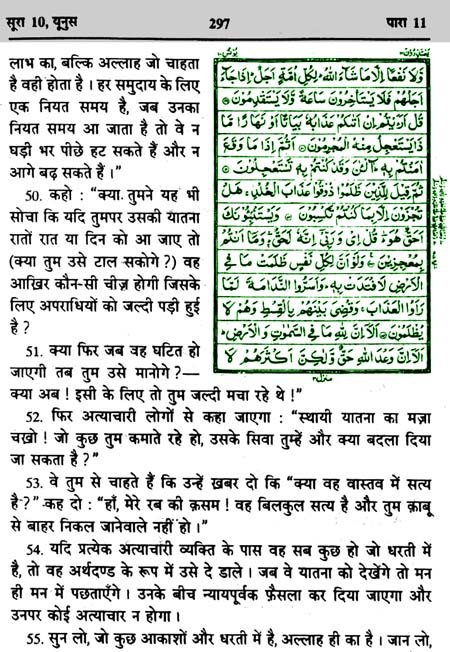 सूरा 10, यूनुस 297 पारा 11
लाभ का, बल्कि अल्लाह जो चाहता
है वही होता है । हर समुदाय के लिए
एक नियत समय है, जब उनका
नियत समय आ जाता है तो वे न
घड़ी भर पीछे हट सकते हैं और न
आगे बढ़ सकते हैं ।"
50. कहो : "क्या तुमने यह भी
सोचा कि यदि तुमपर उसकी यातना
रातों रात या दिन को आ जाए तो
(क्या तुम उसे टाल सकोगे ?) वह
आख़िर कौन-सी चीज़ होगी जिसके
लिए अपराधियों को जल्दी पड़ी हुई
है ?
51. क्या फिर जब वह घटित हो
जाएगी तब तुम उसे मानोगे ?—
क्या अब ! इसी के लिए तो तुम जल्दी मचा रहे थे !"
52. फिर अत्याचारी लोगों से कहा जाएगा : "स्थायी यातना का मज़ा
चखो ! जो कुछ तुम कमाते रहे हो, उसके सिवा तुम्हें और क्या बदला दिया
जा सकता है ?"
53. वे तुम से चाहते हैं कि उन्हें ख़बर दो कि "क्या वह वास्तव में सत्य
है ?" कह दो : "हाँ, मेरे रब की क़सम ! वह बिलकुल सत्य है और तुम क़ाबू
से बाहर निकल जानेवाले नहीं हो ।"
54. यदि प्रत्येक अत्याचारी व्यक्ति के पास वह सब कुछ हो जो धरती में
है, तो वह अर्थदण्ड के रूप में उसे दे डाले । जब वे यातना को देखेंगे तो मन
ही मन में पछताएँगे । उनके बीच न्यायपूर्वक फ़ैसला कर दिया जाएगा और
उनपर कोई अत्याचार न होगा ।
55. सुन लो, जो कुछ आकाशों और धरती में है, अल्लाह ही का है । जान लो,
وَلَا نَفْعًا إِلَّا مَا شَاءَ اللَّهُ لِكُلِّ أُمَّةٍ أَجَلٌ إِذَا جَاءَ
أَجَلُهُمْ فَلَا يَسْتَأْخِرُونَ سَاعَةً وَلَا يَسْتَقْدِمُونَ
قُلْ أَرَءَيْتُمْ إِنْ أَتَىٰكُمْ عَذَابُهُ بَيَاتًا أَوْ نَهَارًا مَّا
ذَا يَسْتَعْجِلُ مِنْهُ الْمُجْرِمُونَ أَثُمَّ إِذَا مَا وَقَعَ
آمَنتُم بِهِ آلْآنَ وَقَدْ كُنتُم بِهِ تَسْتَعْجِلُونَ
ثُمَّ قِيلَ لِلَّذِينَ ظَلَمُوا ذُوقُوا عَذَابَ الْخُلْدِ هَلْ
تُجْزَوْنَ إِلَّا بِمَا كُنتُمْ تَكْسِبُونَ وَيَسْتَنبِئُونَكَ
أَحَقٌّ هُوَ قُلْ إِي وَرَبِّي إِنَّهُ لَحَقٌّ وَمَا أَنتُم
بِمُعْجِزِينَ وَلَوْ أَنَّ لِكُلِّ نَفْسٍ ظَلَمَتْ مَا فِي
الْأَرْضِ لَافْتَدَتْ بِهِ وَأَسَرُّوا النَّدَامَةَ لَمَّا
رَأَوُا الْعَذَابَ وَقُضِيَ بَيْنَهُم بِالْقِسْطِ وَهُمْ لَا
يُظْلَمُونَ أَلَا إِنَّ لِلَّهِ مَا فِي السَّمٰوٰتِ وَالْأَرْضِ
أَلَا إِنَّ وَعْدَ اللَّهِ حَقٌّ وَلَٰكِنَّ أَكْثَرَهُمْ لَا